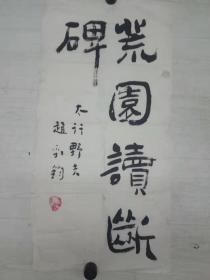 荒園讀斷
碑
太行野夫
趙承鈞